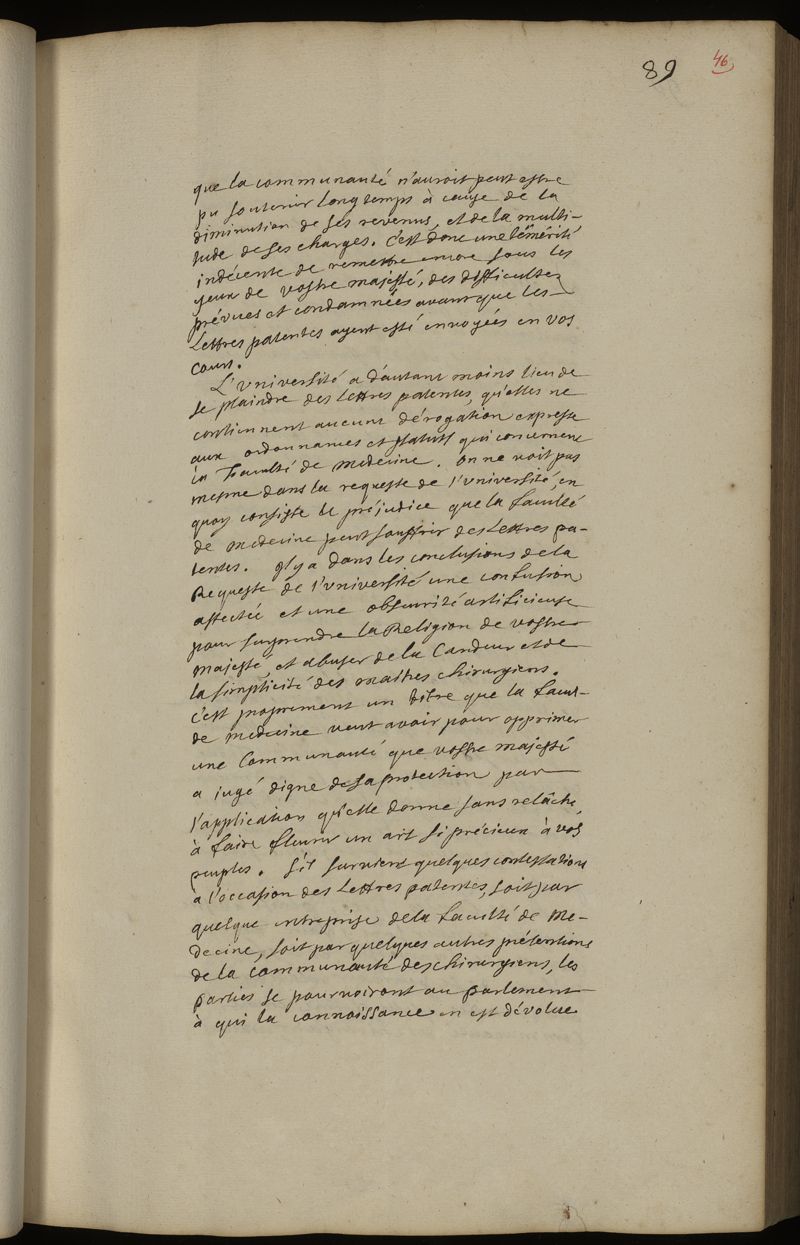 89 46
que la communauté n'auroit peut estre
pu soutenir longtemps à cause de la
diminution de ses revenus, et de la multi-
tude de ses charges. C'est donc une témérité
indécente de remettre encore sous les
yeux de vostre majesté, des difficultez
prévues et condamnées avant que les
Lettres patentes ayent esté envoyées en vos
Cours.
L'Université a d'autant moins lieu de
se plaindre des Lettres patentes, qu'elles ne
contiennent aucune dérogation expresse
aux ordonnances et statuts qui concernent
la Faculté de medecine. On ne voit pas
mesme dans la requeste de l'Université, en
quoy consiste le préjudice que la faculté
de medecine peut souffrir des Lettres pa-
tentes. Il y a dans les conclusions de la
Requeste de l'Université une confusion
affectée et une obscurité artificieuse
pour surprendre la Religion de vostre
majesté, et abuser de la Candeur et de
la simplicité des maitres chirurgiens.
C'est proprement un titre que la facul-
de medecine veut avoir pour opprimer
une Communauté que vostre majesté
a jugé digne de sa protection par
l'application qu'elle donne sans relâche,
à faire fleurir un art si précieux à vos
peuples. S'il survient quelques contestations
à l'occasion des Lettres patentes, soit par
quelque entreprise de la faculté de Me-
decine, soit par quelques autres prétentions
de la Communauté des chirurgiens, les
parties se pourvoiront au parlement
à qui la connoissance en est dévolue